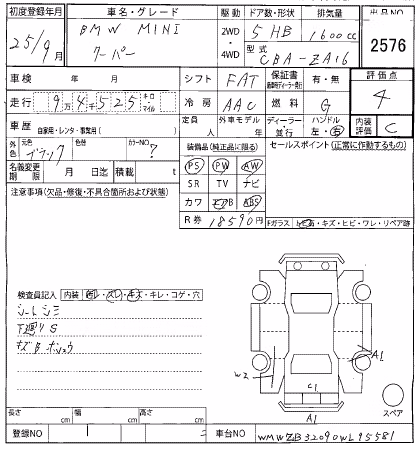 初度登録年月 車名・グレード 駆動 ドア数・形状 排気量 出品NO
25/9月 BMW MINI 2WD 5 HB 1600cc 2576
クーパー 4WD 型式 CBA-ZA16
車検 年 月 シフト FAT 保証書 有・無 評価点
走行 9万4千525 キロ マイル 冷房 AAC 燃料 G 4
車歴 自家用・レンタ・事業用( ) 定員 人 外車モデル 年 ディーラー・並行 ハンドル 左・右 内装評価 C
外色 元色 ブラック 色替 カラーNO? 装備品(純正品に限る) セールスポイント(正常に作動するもの)
名義変更期限 月 日迄 積載 t PS PW AW
注意事項(欠品・修復・不具合箇所および状態) SR TV ナビ
カワ エアB ABS
R券 18590円 Fガラス トビ石・キズ・ヒビ・ワレ・リペア跡
検査員記入 内装 ヨゴレ・スレ・キズ・キレ・コゲ・穴
シートシミ
下廻りS
A1
W2
C1
A1
スペア
長さ cm 幅 cm 高さ cm
登録NO 車台NO WMWZB32090WL95581